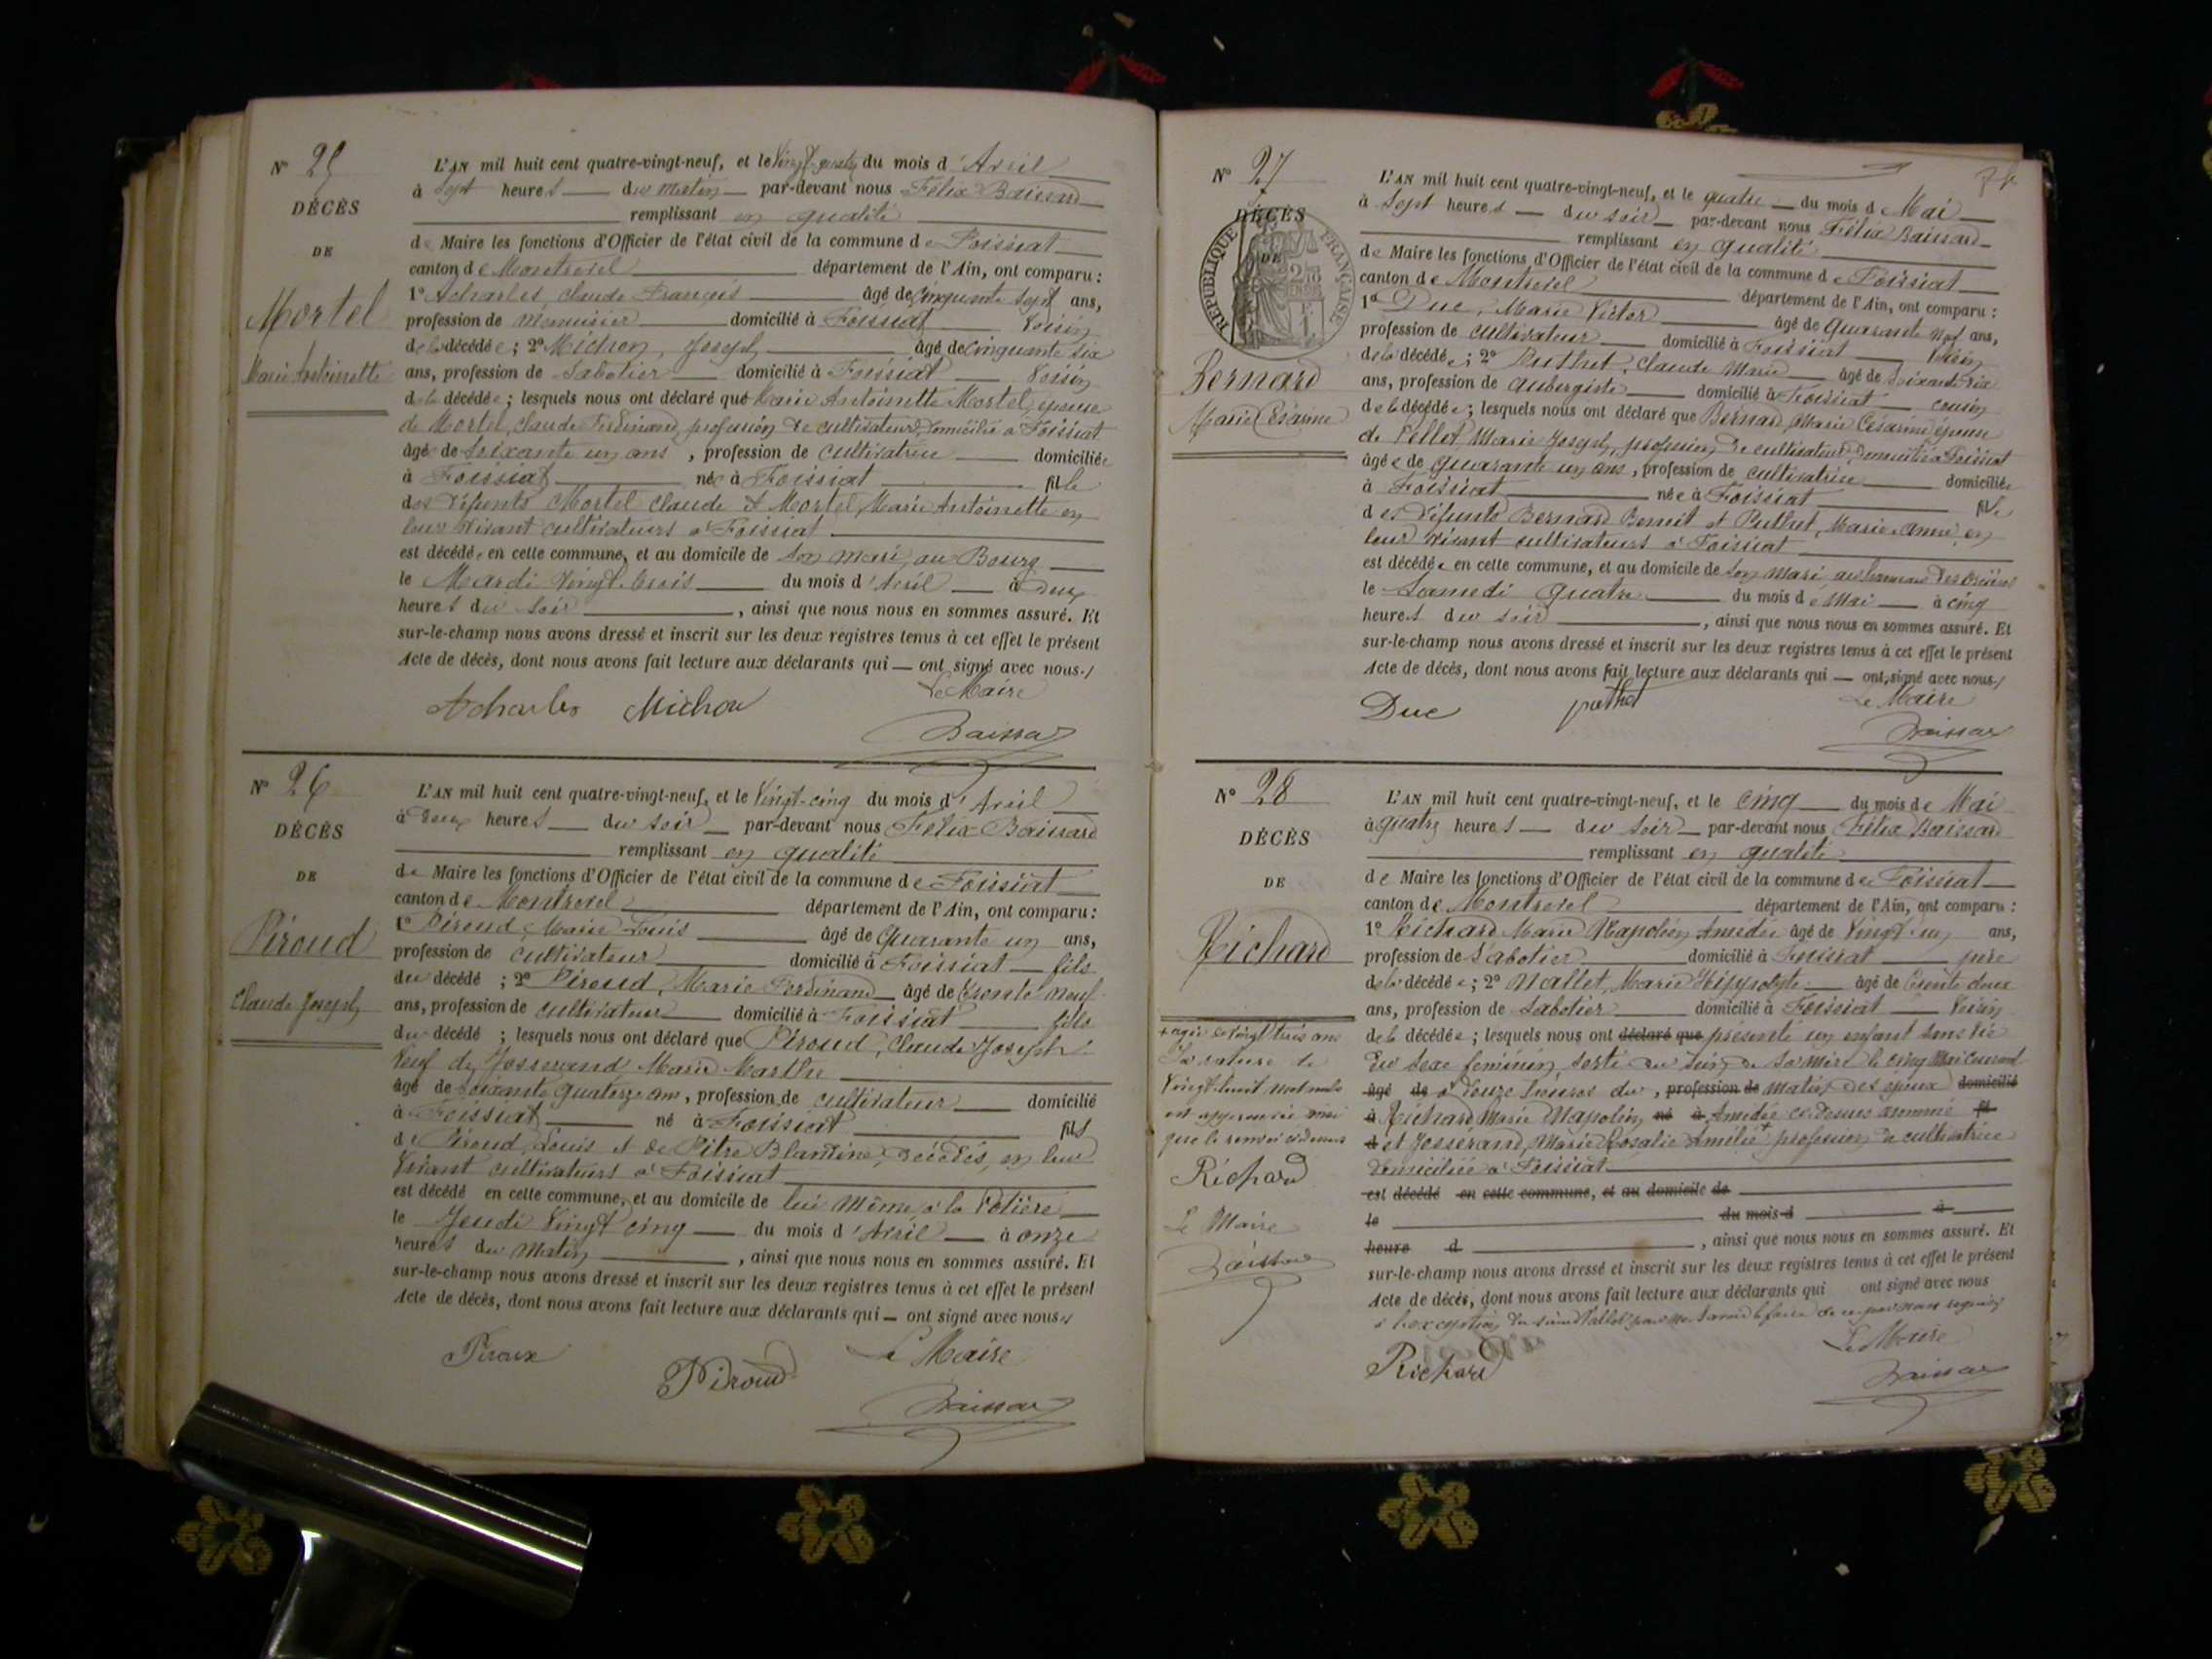 N° 25
DÉCÈS
DE
Mortel
Marie Antoinette
L'AN mil huit cent quatre-vingt-neuf, et le Vingt-quatre du mois d'Avril
à Sept heures du matin par-devant nous Félix Baissard
remplissant en qualité
de Maire les fonctions d'Officier de l'état civil de la commune de Foissiat
canton de Montrevel département de l'Ain, ont comparu :
1° Acharles, Claude François âgé de Cinquante Sept ans,
profession de Menuisier domicilié à Foissiat Voisin
de la décédée ; 2° Michon, Joseph âgé de Cinquante six
ans, profession de Sabotier domicilié à Foissiat Voisin
de la décédée ; lesquels nous ont déclaré que Marie Antoinette Mortel, épouse
de Mortel, Claude Ferdinand, profession de cultivateur, domicilié à Foissiat
âgée de Soixante un ans, profession de Cultivatrice domiciliée
à Foissiat née à Foissiat fille
des défunts Mortel Claude et Mortel, Marie Antoinette en
leur vivant cultivateurs à Foissiat
est décédée en cette commune, et au domicile de son mari, au Bourg
le Mardi Vingt trois du mois d'Avril à deux
heures du Soir, ainsi que nous nous en sommes assuré. Et
sur-le-champ nous avons dressé et inscrit sur les deux registres tenus à cet effet le présent
Acte de décès, dont nous avons fait lecture aux déclarants qui — ont signé avec nous./
Le Maire
Acharles Michon
Baissard
N° 26
DÉCÈS
DE
Piroud
Claude Joseph
L'AN mil huit cent quatre-vingt-neuf, et le Vingt-cinq du mois d'Avril
à deux heures du soir par-devant nous Félix Baissard
remplissant en qualité
de Maire les fonctions d'Officier de l'état civil de la commune de Foissiat
canton de Montrevel département de l'Ain, ont comparu :
1° Piroud, Marie Louis âgé de Quarante un ans,
profession de cultivateur domicilié à Foissiat fils
du décédé ; 2° Piroud, Marie Ferdinand âgé de trente neuf
ans, profession de cultivateur domicilié à Foissiat fils
du décédé ; lesquels nous ont déclaré que Piroud, Claude Joseph
Veuf de Josserand Marie Marthe
âgé de Soixante quatorze ans, profession de cultivateur domicilié
à Foissiat né à Foissiat fils
de Piroud, Louis et de Pitre Blandine, décédés, en leur
Vivant cultivateurs à Foissiat
est décédé en cette commune, et au domicile de lui même à la Potière
le Jeudi Vingt cinq du mois d'Avril à onze
heures du Matin, ainsi que nous nous en sommes assuré. Et
sur-le-champ nous avons dressé et inscrit sur les deux registres tenus à cet effet le présent
Acte de décès, dont nous avons fait lecture aux déclarants qui — ont signé avec nous./
Le Maire
Piroud
Piroud
Baissard
N° 27
DÉCÈS
DE
RÉPUBLIQUE FRANÇAISE
Bernard
Marie Césarine
L'AN mil huit cent quatre-vingt-neuf, et le quatre du mois de Mai
à Sept heures du soir par-devant nous Félix Baissard
remplissant en qualité
de Maire les fonctions d'Officier de l'état civil de la commune de Foissiat
canton de Montrevel département de l'Ain, ont comparu :
1° Duc, Marie Victor âgé de Quarante neuf ans,
profession de cultivateur domicilié à Foissiat Voisin
de la décédée ; 2° Puthet, Claude Marie âgé de Soixante six
ans, profession de aubergiste domicilié à Foissiat cousin
de la décédée ; lesquels nous ont déclaré que Bernard, Marie Césarine épouse
de Pellet Marie Joseph, profession de cultivateur, domicilié à Foissiat
âgée de quarante un ans, profession de cultivatrice domiciliée
à Foissiat née à Foissiat fille
des défunts Bernard Benoit et Puthet, Marie Anne en
leur vivant cultivateurs à Foissiat
est décédée en cette commune, et au domicile de son mari, au hameau des
le Samedi quatre du mois de Mai à cinq
heures du soir, ainsi que nous nous en sommes assuré. Et
sur-le-champ nous avons dressé et inscrit sur les deux registres tenus à cet effet le présent
Acte de décès, dont nous avons fait lecture aux déclarants qui — ont signé avec nous./
Le Maire
Duc puthet
Baissard
N° 28
DÉCÈS
DE
Richard
L'AN mil huit cent quatre-vingt-neuf, et le Cinq du mois de Mai
à quatre heures du soir par-devant nous Félix Baissard
remplissant en qualité
de Maire les fonctions d'Officier de l'état civil de la commune de Foissiat
canton de Montrevel département de l'Ain, ont comparu :
1° Richard Marie Napoléon Amédée âgé de Vingt un ans,
profession de Sabotier domicilié à Foissiat père
de la décédée ; 2° Mallet, Marie Hippolyte âgé de trente deux
ans, profession de Sabotier domicilié à Foissiat Voisin
de la décédée ; lesquels nous ont déclaré que présenté un enfant sans vie
du sexe féminin, sorti du sein de sa mère le cinq Mai courant
âgé de à douze heures du, profession de matin, des époux domicilié
à Richard Marie Napoléon né à Amédée ci-dessus nommé
d et Josserand, Marie Rosalie Amélie + profession de cultivatrice
domiciliée à Foissiat
est décédé en cette commune, et au domicile de
le du mois d à
heure d, ainsi que nous nous en sommes assuré. Et
sur-le-champ nous avons dressé et inscrit sur les deux registres tenus à cet effet le présent
Acte de décès, dont nous avons fait lecture aux déclarants qui ont signé avec nous
à l'exception du sieur Mallet pour ne savoir le faire de ce par nous requis
Le Maire
Richard
Baissard
+ agée de vingt trois ans
La rature de
Vingt huit mots nuls
est approuvée ainsi
que le renvoi ci dessus
Richard
Le Maire
Baissard